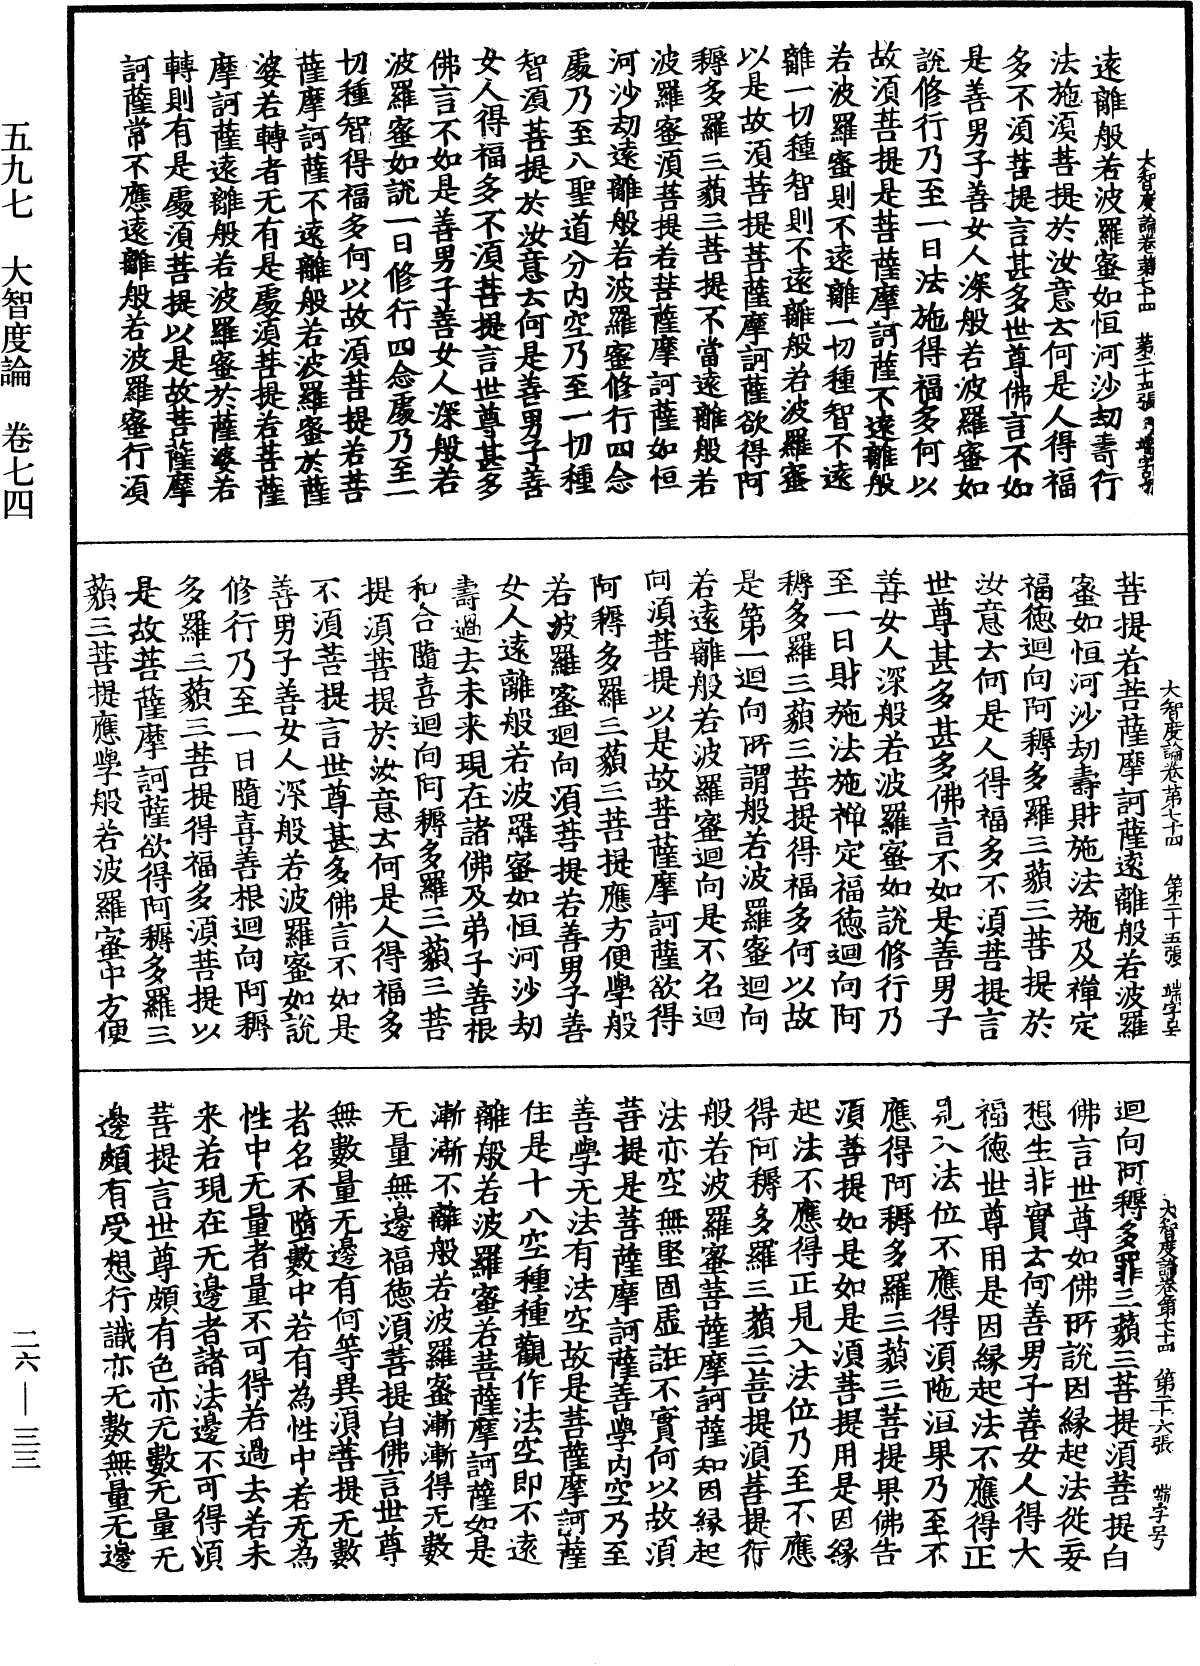 大智度論卷第七十四　第二十四張　端字號
遠離般若波羅蜜如恒河沙劫壽行
法施須菩提於汝意云何是人得福
多不須菩提言甚多世尊佛言不如
是善男子善女人深般若波羅蜜如
說修行乃至一日法施得福多何以
故須菩提是菩薩摩訶薩不遠離般
若波羅蜜則不遠離一切種智不遠
離一切種智則不遠離般若波羅蜜
以是故須菩提菩薩摩訶薩欲得阿
耨多羅三藐三菩提不當遠離般若
波羅蜜須菩提若菩薩摩訶薩如恒
河沙劫遠離般若波羅蜜修行四念
處乃至八聖道分內空乃至一切種
智須菩提於汝意云何是善男子善
女人得福多不須菩提言世尊甚多
佛言不如是善男子善女人深般若
波羅蜜如說一日修行四念處乃至一
切種智得福多何以故須菩提若菩
薩摩訶薩不遠離般若波羅蜜於薩
婆若轉者无有是處須菩提若菩薩
摩訶薩遠離般若波羅蜜於薩婆若
轉則有是處須菩提以是故菩薩摩
訶薩常不應遠離般若波羅蜜行須
大智度論卷第七十四　第二十五張　端字号
菩提若菩薩摩訶薩遠離般若波羅
蜜如恒河沙劫壽財施法施及禪定
福德迴向阿耨多羅三藐三菩提於
汝意云何是人得福多不須菩提言
世尊甚多甚多佛言不如是善男子
善女人深般若波羅蜜如說修行乃
至一日財施法施禪定福德迴向阿
耨多羅三藐三菩提得福多何以故
是第一迴向所謂般若波羅蜜迴向
若遠離般若波羅蜜迴向是不名迴
向須菩提以是故菩薩摩訶薩欲得
阿耨多羅三藐三菩提應方便學般
若波羅蜜迴向須菩提若善男子善
女人遠離般若波羅蜜如恒河沙劫
壽過去未来現在諸佛及弟子善根
和合隨喜迴向阿耨多羅三藐三菩
提須菩提於汝意云何是人得福多
不須菩提言世尊甚多佛言不如是
善男子善女人深般若波羅蜜如說
修行乃至一日隨喜善根迴向阿耨
多羅三藐三菩提得福多須菩提以
是故菩薩摩訶薩欲得阿耨多羅三
藐三菩提應學般若波羅蜜中方便
大智度論卷第七十四　第二十六張　端字号
迴向阿耨多羅三藐三菩提須菩提白
佛言世尊如佛所說因緣起法從妄
想生非實云何善男子善女人得大
福德世尊用是因緣起法不應得正
見入法位不應得須陁洹果乃至不
應得阿耨多羅三藐三菩提果佛告
須菩提如是如是須菩提用是因緣
起法不應得正見入法位乃至不應
得阿耨多羅三藐三菩提須菩提行
般若波羅蜜菩薩摩訶薩知因緣起
法亦空無堅固虛誑不實何以故須
菩提是菩薩摩訶薩善學內空乃至
善學无法有法空故是菩薩摩訶薩
住是十八空種種觀作法空即不遠
離般若波羅蜜若菩薩摩訶薩如是
漸漸不離般若波羅蜜漸漸得无數
无量無邊福德須菩提白佛言世尊
無數量无邊有何等異須菩提无數
者名不墮數中若有為性中若无為
性中无量者量不可得若過去若未
来若現在无邊者諸法邊不可得須
菩提言世尊頗有色亦无數无量无
邊頗有受想行識亦无數無量无邊
五九七　大智度論　卷七四
二六—三三